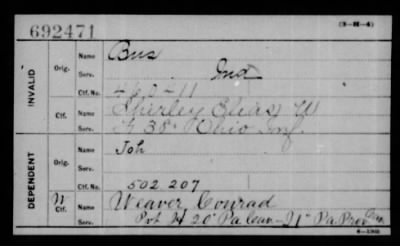 692471
(3-H-4)
INVALID
Orig.
Name Bus
Serv. Ind
Ctf. No. 460411
Ctf.
Name Shirley Elias W
Serv. 38" Ohio Inf.
DEPENDENT
Orig.
Name Joh
Serv.
Ctf. No. 502 207
W Ctf.
Name Weaver, Conrad
Serv. Pvt H 20" Pa Cav - 21" Pa Prov Cav